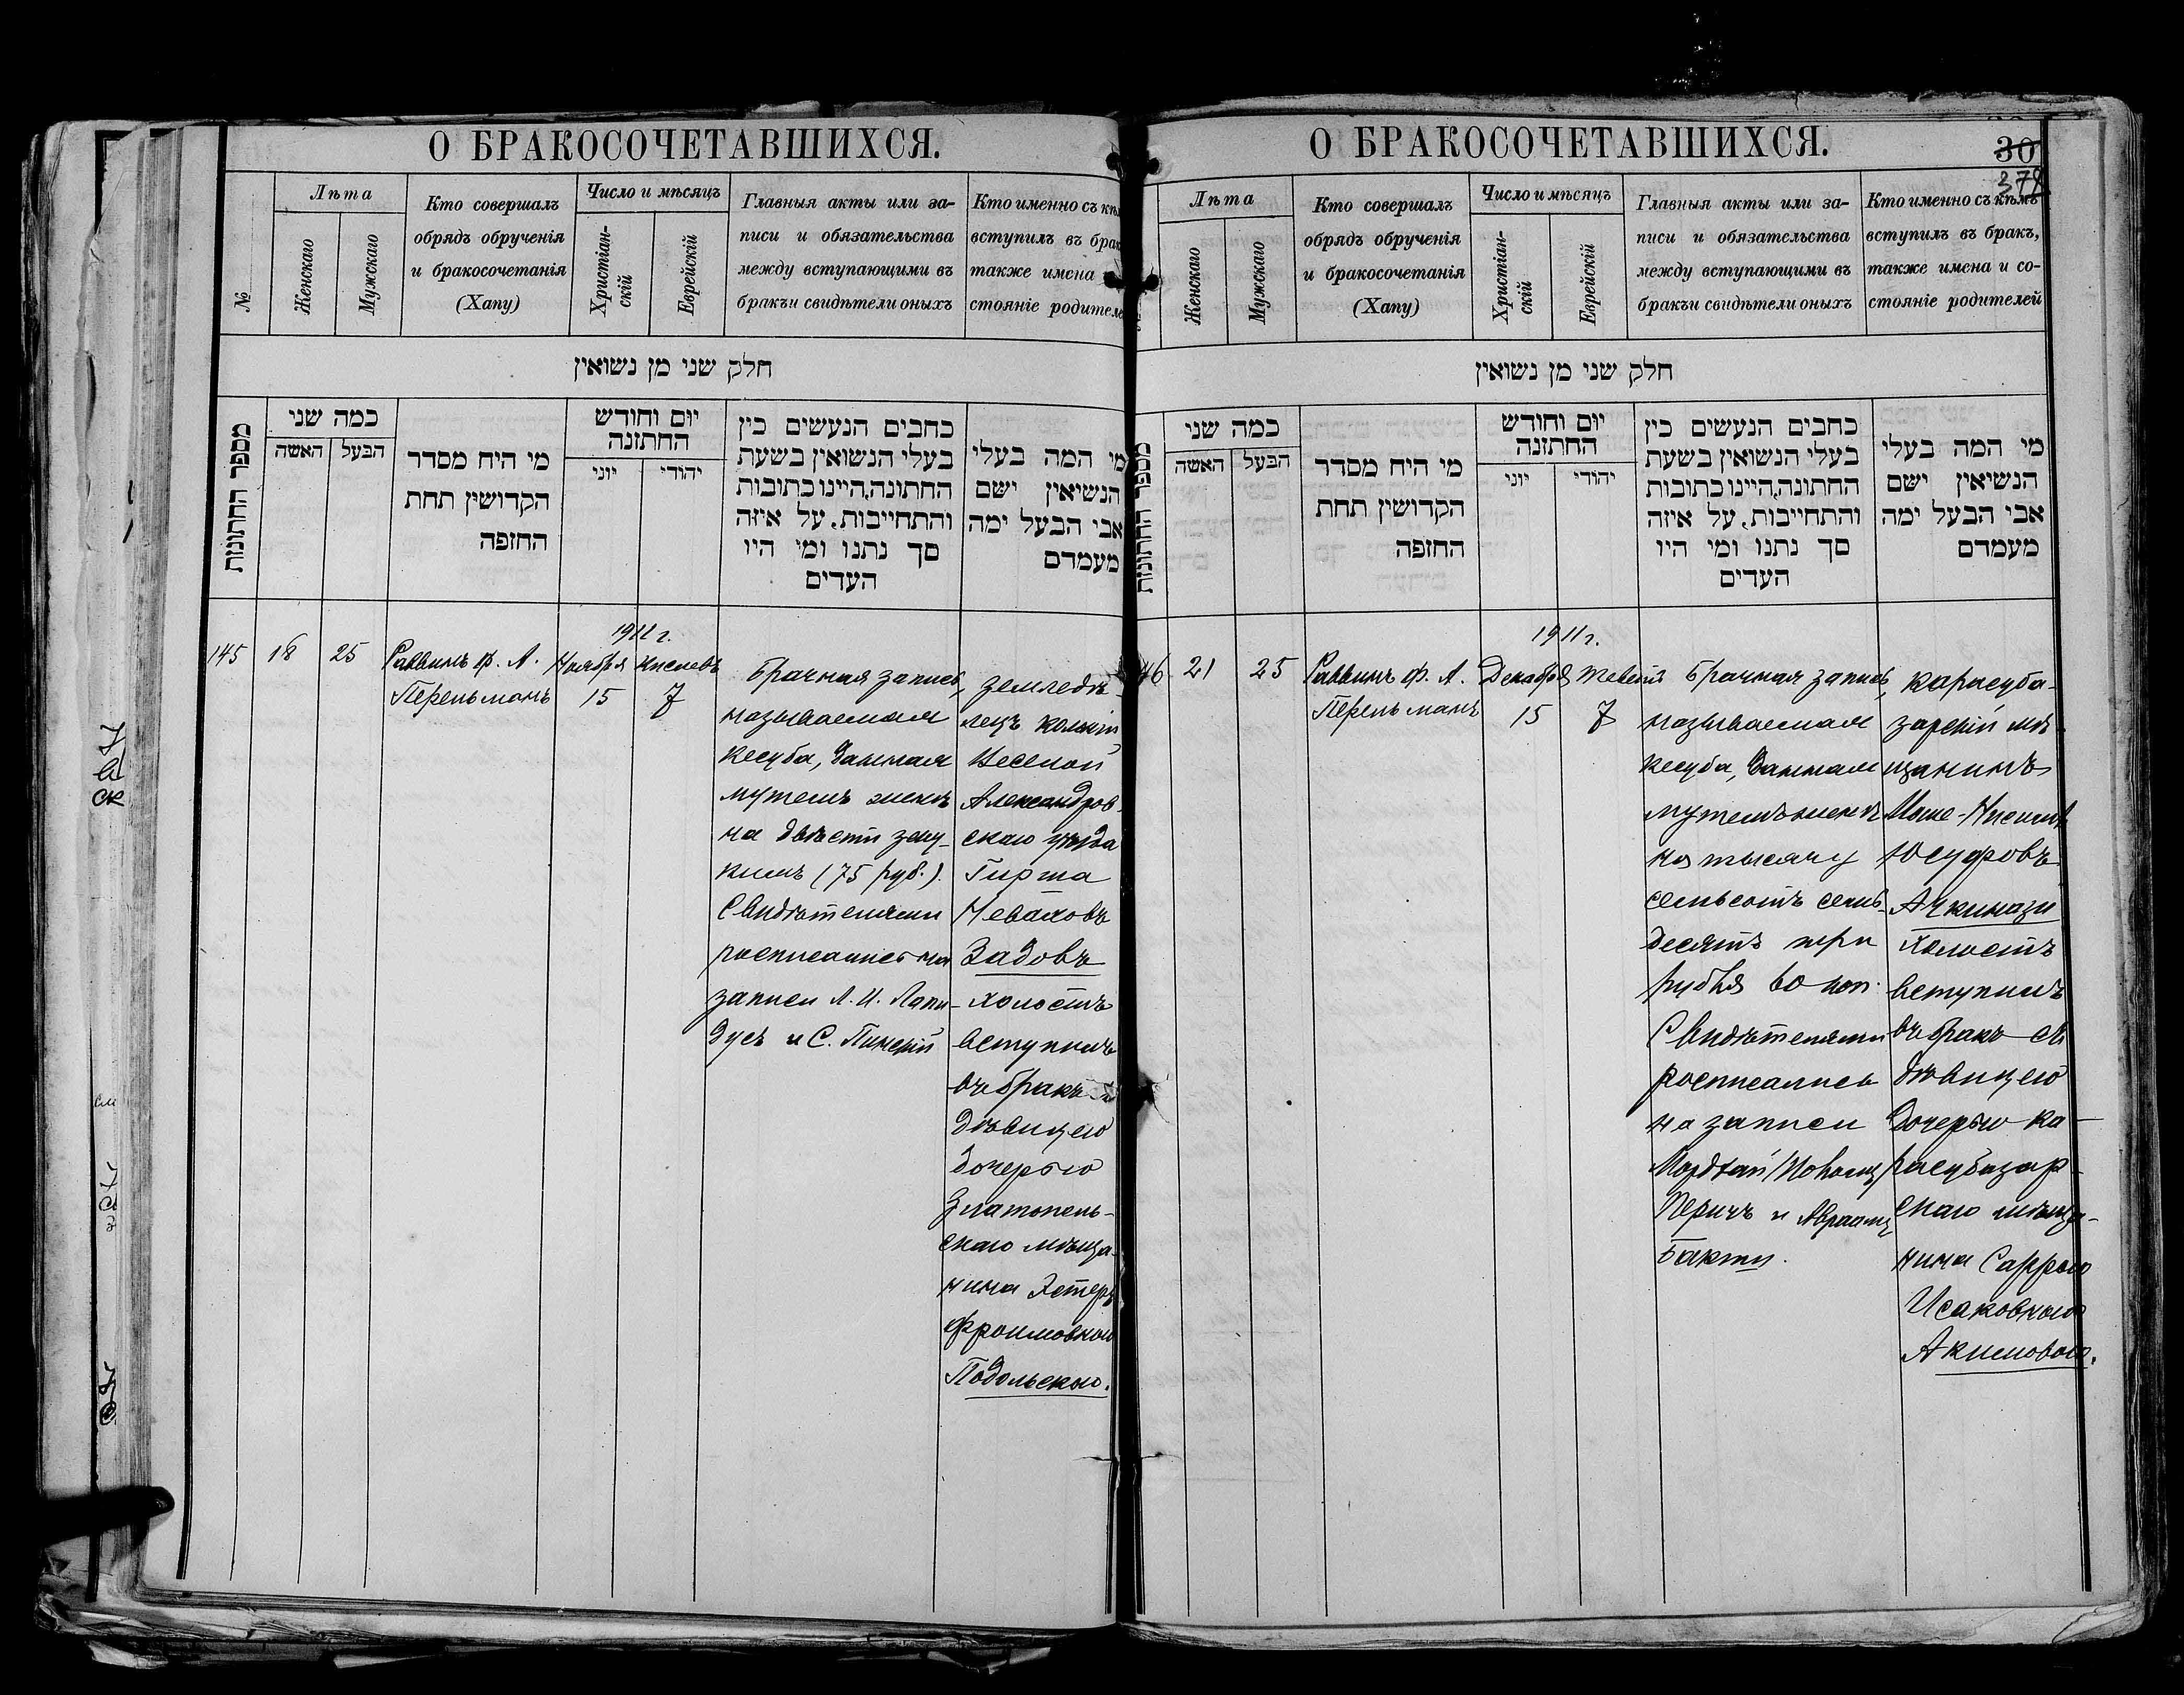 О БРАКОСОЧЕТАВШИХСЯ.
№
Лѣта
Женскаго
Мужскаго
Кто совершалъ
обрядъ обрученія
и бракосочетанія
(Хапу)
Число и мѣсяцъ
Христіан-
скій
Еврейскій
Главныя акты или за-
писи и обязательства
между вступающими въ
бракъ и свидѣтели оныхъ
Кто именно съ
вступилъ въ
также имена
стояніе
חלק שני מן נשואין
מספר החתונות
כמה שני
האשה
הבעל
מי היח מסדר
הקדושין תחת
החופה
יום וחודש
החתונה
יוני
יהודי
כתבים הנעשים בין
בעלי הנשואין בשעת
החתונה, היינו כתובות
והתחייבות, על איזה
סך נתנו ומי היו
העדים
מי המה בעלי
הנשיאין ישם
אבי הבעל ימה
מעמדם
145
18
25
Раввинъ Ф. А.
Перельманъ
1911 г.
Ноября
15
Кислевъ
7
Брачная запись,
называемая
кесуба, данная
мужемъ женѣ
на двѣсти зеку-
кимъ (75 руб.).
Свидѣтелями
росписались на
записи Л. И. Лапи-
дусъ и С. Пинскій
земледѣ-
лецъ колоніи
Веселой
Александров-
скаго уѣзда
Гирша
Неваховъ
Задовъ
холостъ
вступилъ
въ бракъ
дѣвицею
дочерью
Златополь-
скаго мѣща-
нина Эстеръ
Фроимовною
Подольскою.
О БРАКОСОЧЕТАВШИХСЯ.
30
379
Лѣта
Женскаго
Мужскаго
Кто совершалъ
обрядъ обрученія
и бракосочетанія
(Хапу)
Число и мѣсяцъ
Христіан-
скій
Еврейскій
Главныя акты или за-
писи и обязательства
между вступающими въ
бракъ и свидѣтели оныхъ
Кто именно съ кѣмъ
вступилъ въ бракъ,
также имена и со-
стояніе родителей
חלק שני מן נשואין
מספר החתונות
כמה שני
האשה
הבעל
מי היח מסדר
הקדושין תחת
החופה
יום וחודש
החתונה
יוני
יהודי
כתבים הנעשים בין
בעלי הנשואין בשעת
החתונה, היינו כתובות
והתחייבות, על איזה
סך נתנו ומי היו
העדים
מי המה בעלי
הנשיאין ישם
אבי הבעל ימה
מעמדם
46
21
25
Раввинъ Ф. А.
Перельманъ
1911 г.
Декабря
15
Тевета
7
Брачная запись,
называемая
кесуба, данная
мужемъ женѣ
на тысячу
семьсотъ семь-
десятъ три
рубля 60 коп.
Свидѣтелями
росписались
на записи
Мордхай
Перичъ и Авраамъ
Бакши.
карасуба-
зарскій мѣ-
щанинъ
Моше-Нисимъ
Юсуфовъ
Ачкинази
холостъ
вступилъ
въ бракъ съ
дѣвицею
дочерью ка-
расубазар-
скаго мѣща-
нина Саррою
Исаковною
Акимовою.